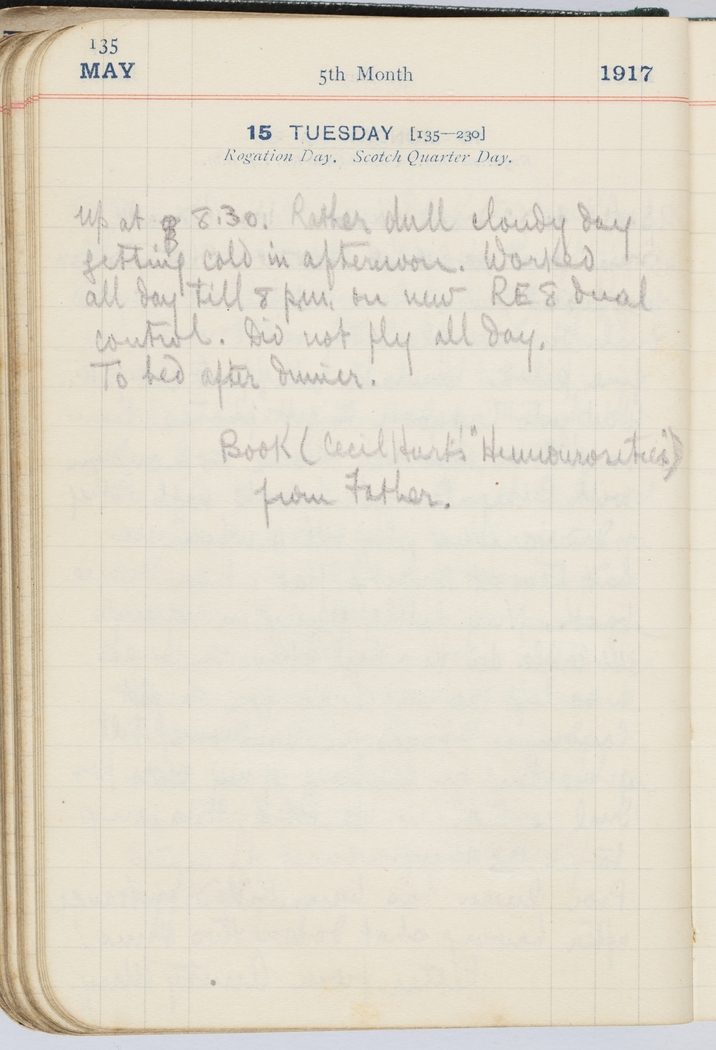 135
MAY 5th Month 1917
15 TUESDAY [135—230]
Rogation Day. Scotch Quarter Day.
Up at 8.30. Rather dull cloudy day
getting cold in afternoon. Worked
all day till 8 p.m. on new RE8 dual
control. Did not fly all day.
To bed after dinner.
Book (Cecil Hunt's "Humourosities")
from Father.